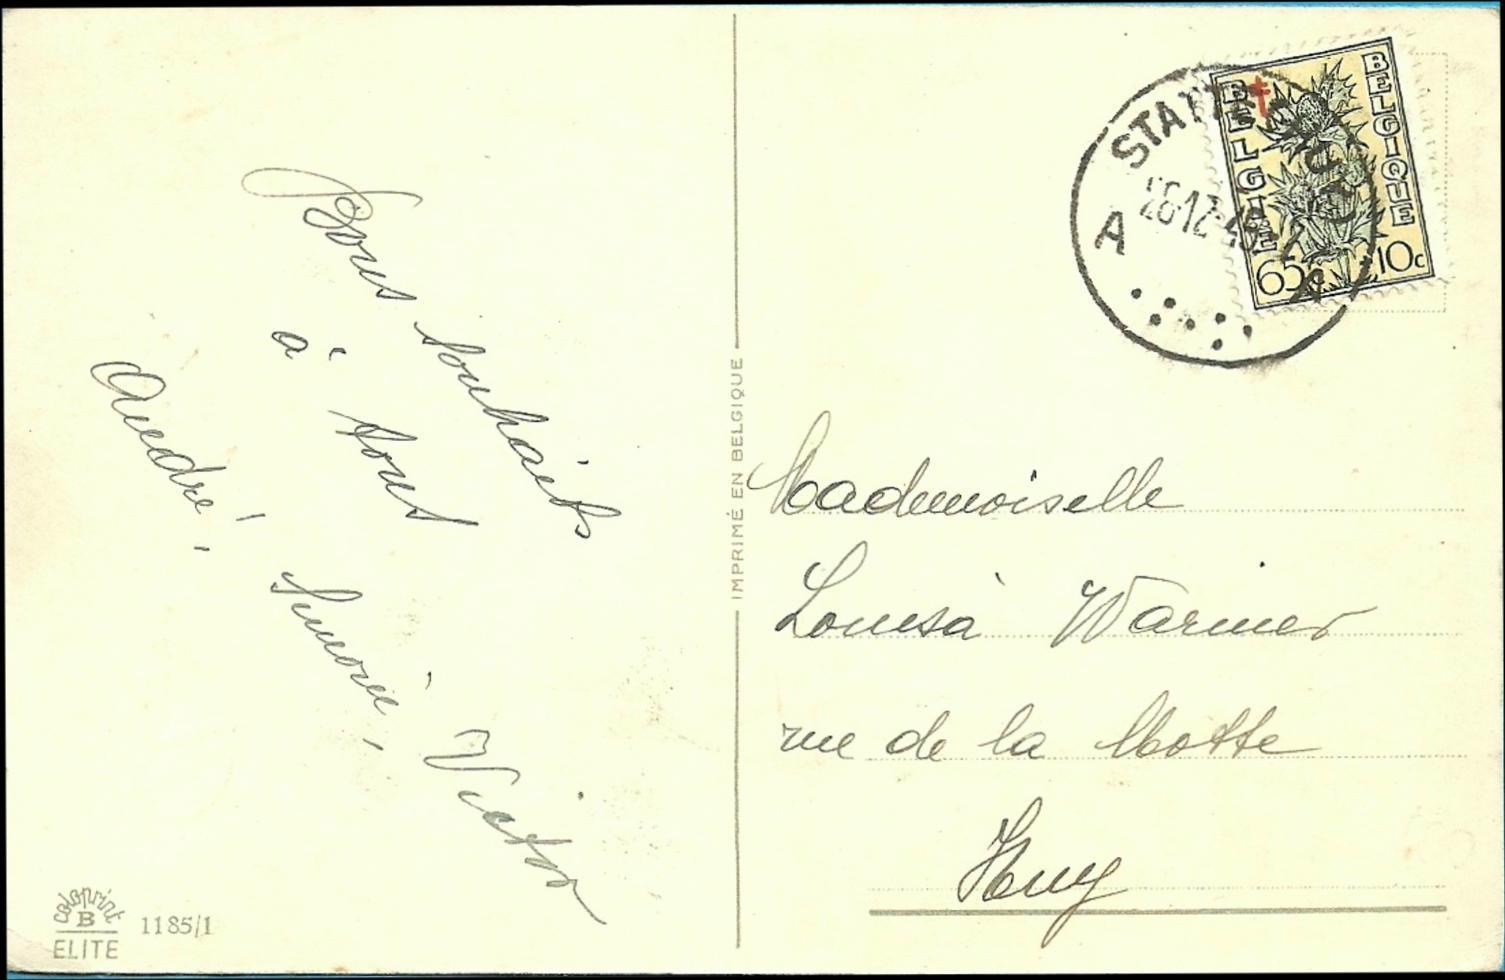 Bons souhaits
à tous
André, Simone, Victor
coloprint
B
ELITE
1185/1
IMPRIMÉ EN BELGIQUE
STATTE (HUY)
A 26-12-49 A
BELGIE BELGIQUE
65c +10c
Mademoiselle
Louisa Warnier
rue de la Motte
Huy